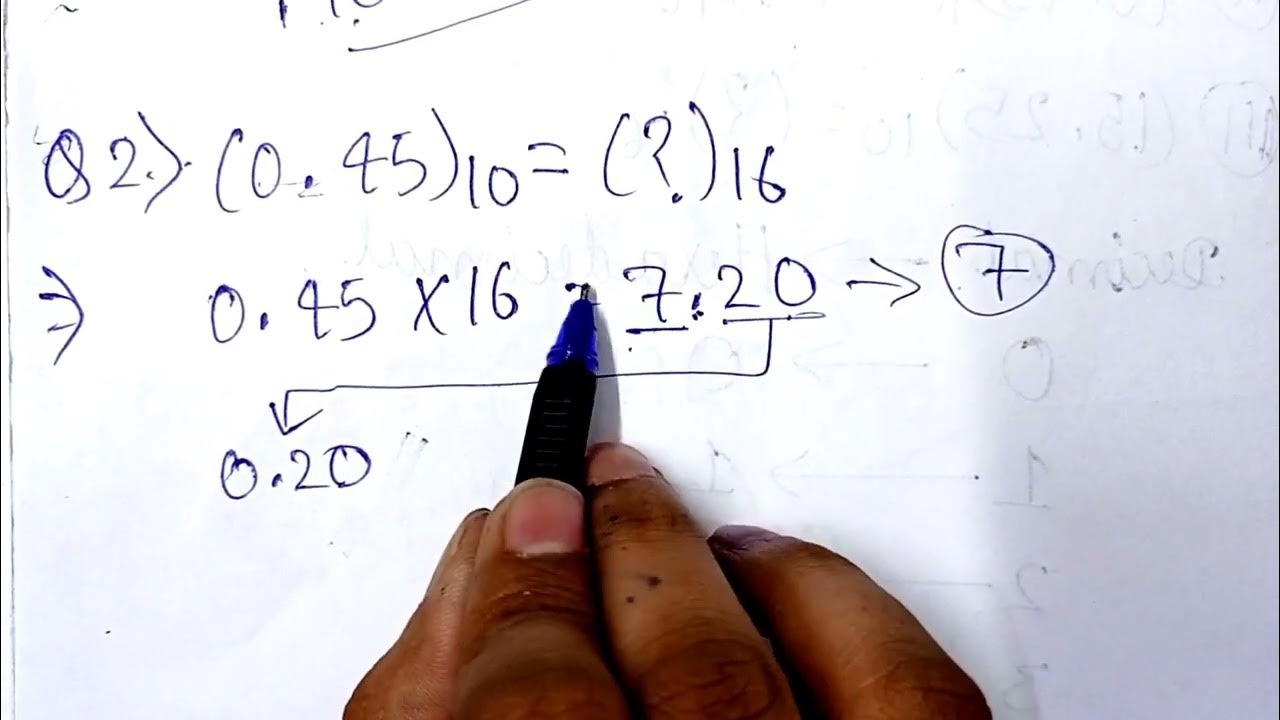 Q2.) (0.45)10 = (?)16
⇒ 0.45 × 16 = 7.20 → 7
0.20